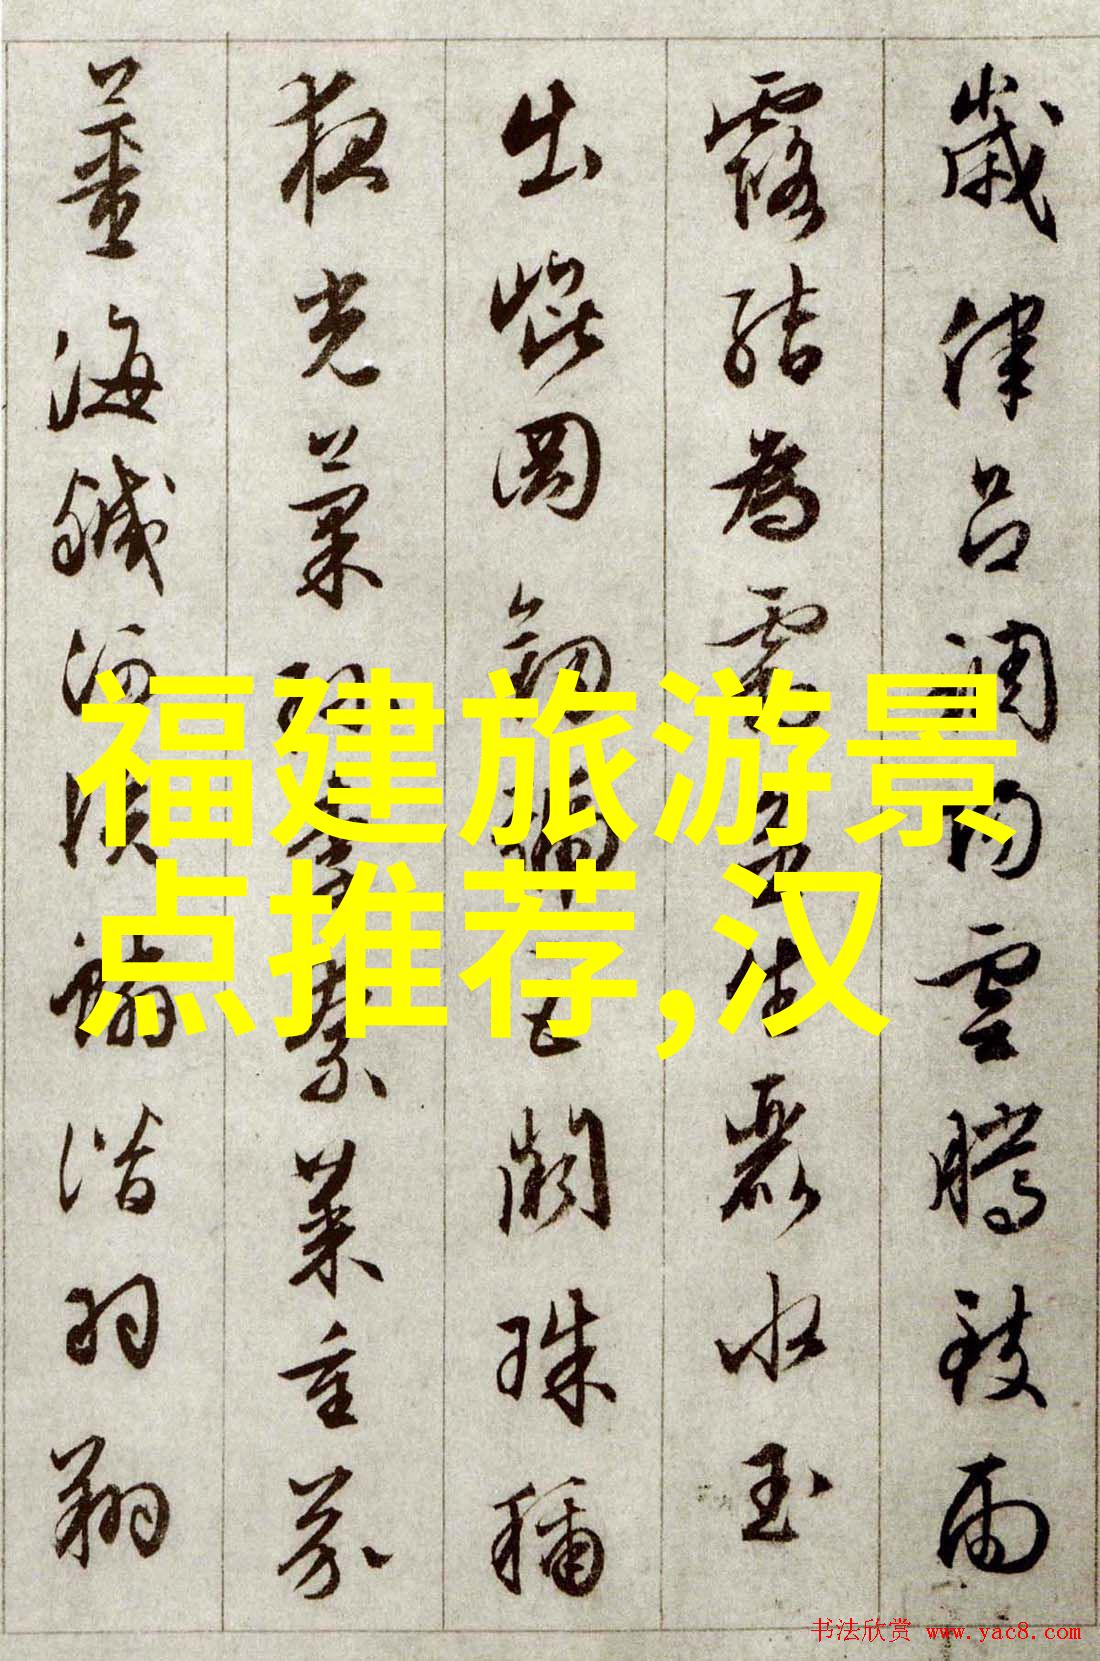 歲律呂調陽雲騰致雨
露結為霜金生麗水玉
出崐岡劍號巨闕珠稱
夜光菓珍李柰菜重芥
薑海鹹河淡鱗潜羽翔
福建旅游景
点推荐,汉
书法欣赏 www.yac8.com